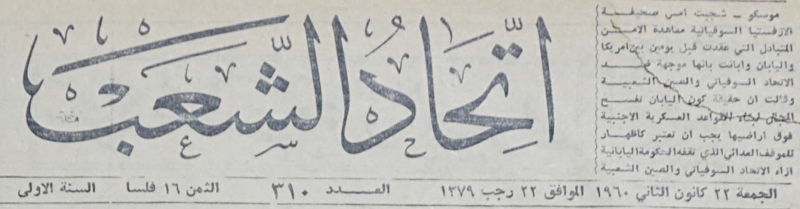 موسكو - شجبت امس صحيفة
الازفستيا السوفياتية معاهدة الامن
المتبادل التي عقدت قبل يومين بين امريكا
واليابان وابانت بانها موجهة ضد
الاتحاد السوفياتي والصين الشعبية
وقالت ان حقيقة كون اليابان تفسح
المجال لبناء القواعد العسكرية الاجنبية
فوق اراضيها يجب ان تعتبر كاظهار
للموقف العدائي الذي تقفه الحكومة اليابانية
ازاء الاتحاد السوفياتي والصين الشعبية
اتحاد الشعب
الجمعة ٢٢ كانون الثاني ١٩٦٠ الموافق ٢٢ رجب ١٣٧٩ العدد ٣١٠ الثمن ١٦ فلسا السنة الاولى